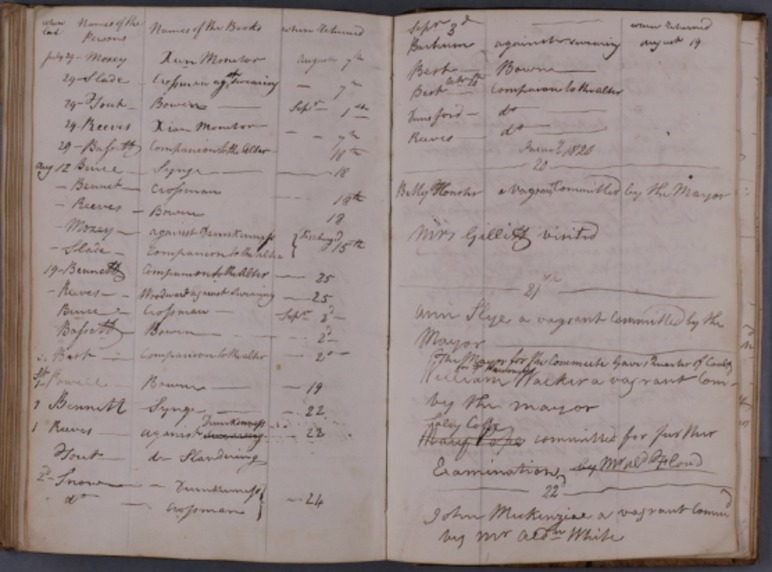 when Lent Names of the Persons Names of the Books when Returned
July 29 - Moxey Xian Monitor August 7th
29 - Slade Crossman agst Swearing — 7th
29 - Yout Bowen — Septr 1st
29 Reeves Xian Monitor — 7th
29 - Bassett Companion to the Alter 18th
Aug 12 Synge — 18
- Bennet - Crossman 18th
- Reeves - Bowen 18
- Moxey - against Drunkenness discharged 15th
- Slade - Companion to the alter
19 - Bennett Companion to the Alter — 25
- Reeves - Woodward against Swearing — 25
Crossman — Septr 2d
Bassett Bowen — 2d
Best - Companion to the alter — 2d
Powell Bowen — 19
Bennett - Synge — 22
Reeves - against Drunkenness swearing — 22
Yout do Slandering
2 - Snow - Drunkenness
do - Crossman } — 24
Septr 3d when Returned
against swearing August 19
Best - Bowen —
Best Companion to the alter
do —
Reeves - do —
Januy 1820
20
Betty a vagrant Committed by the Mayor
Mrs Gillett visited
21st
Ann Skye a vagrant Committed by the
Mayor
The Mayor for the Committee Gave Quarter of
William Walker a vagrant Com-
by the mayor
committed for further
Examination by Mr Ald Flood
22d
John Mickenzie a vagrant Commd
by Mr Aldn White